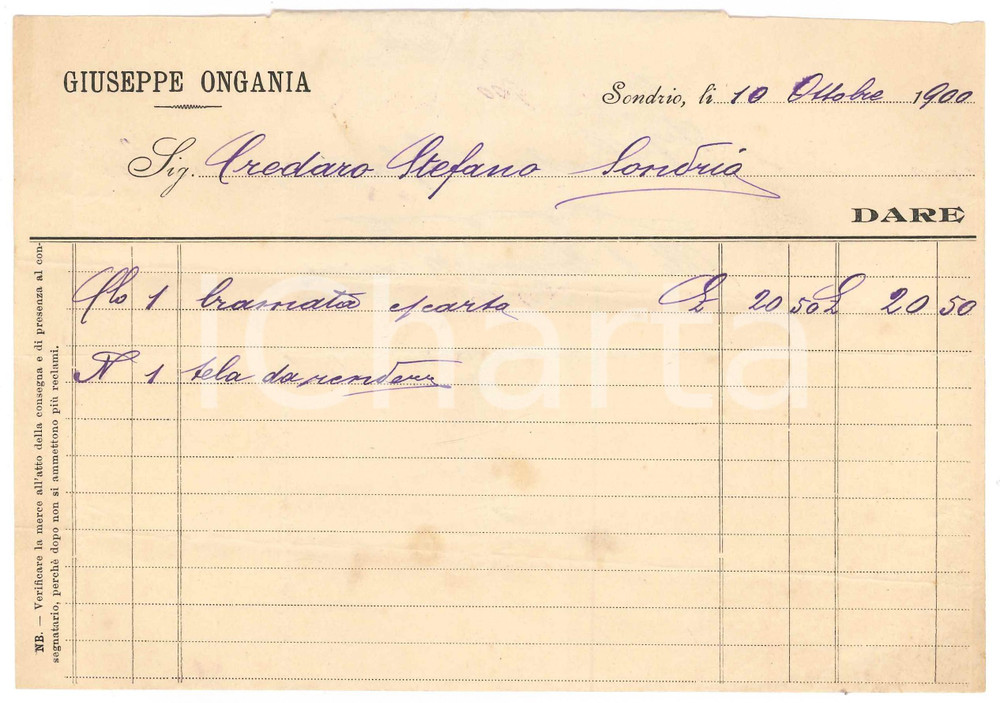 GIUSEPPE ONGANIA
Sondrio, li 10 Ottobre 1900
Sig. Credaro Stefano Sondrio
DARE
1 bramata scarta £ 20 50 £ 20 50
N 1 tela da render
NB. — Verificare la merce all'atto della consegna e di presenza al con-
segnatario, perchè dopo non si ammettono più reclami.
iCharta